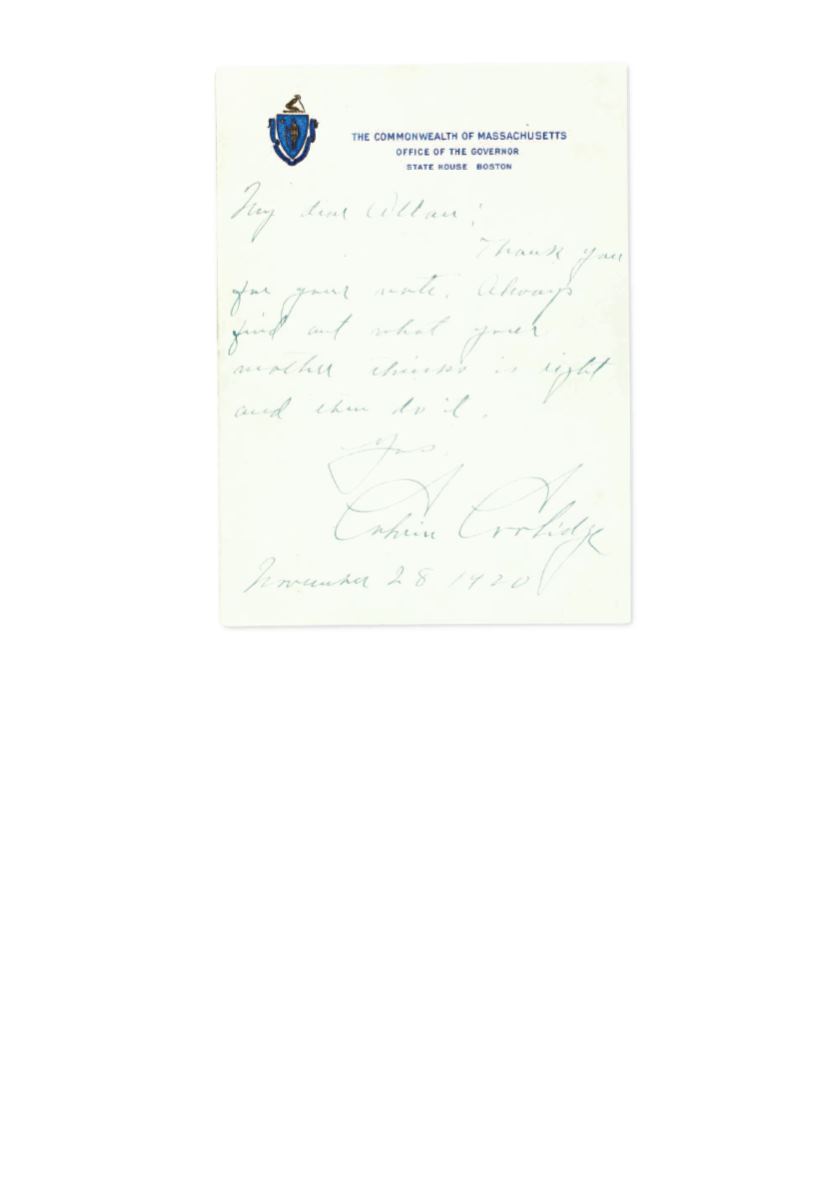 THE COMMONWEALTH OF MASSACHUSETTS
OFFICE OF THE GOVERNOR
STATE HOUSE BOSTON
My dear Allan:
Thank you
for your note. Always
find out what your
mother thinks is right
and then do it.
Yrs.
Calvin Coolidge
November 28 1920